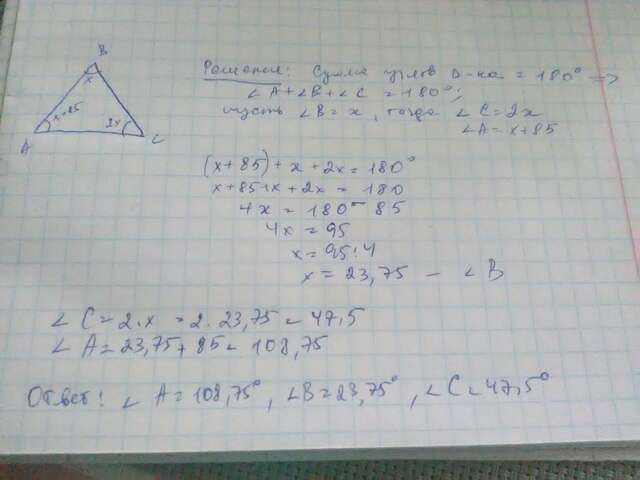 B
x
x+85
2x
A
C
Решение: Сумма углов Δ-ка = 180° =>
∠A+∠B+∠C = 180°;
пусть ∠B = x, тогда ∠C = 2x
∠A = x+85
(x+85)+x+2x = 180°
x+85+x+2x = 180
4x = 180-85
4x = 95
x = 95:4
x = 23,75 — ∠B
∠C = 2·x = 2·23,75 = 47,5
∠A = 23,75+85 = 108,75
Ответ: ∠A = 108,75°, ∠B = 23,75°, ∠C = 47,5°